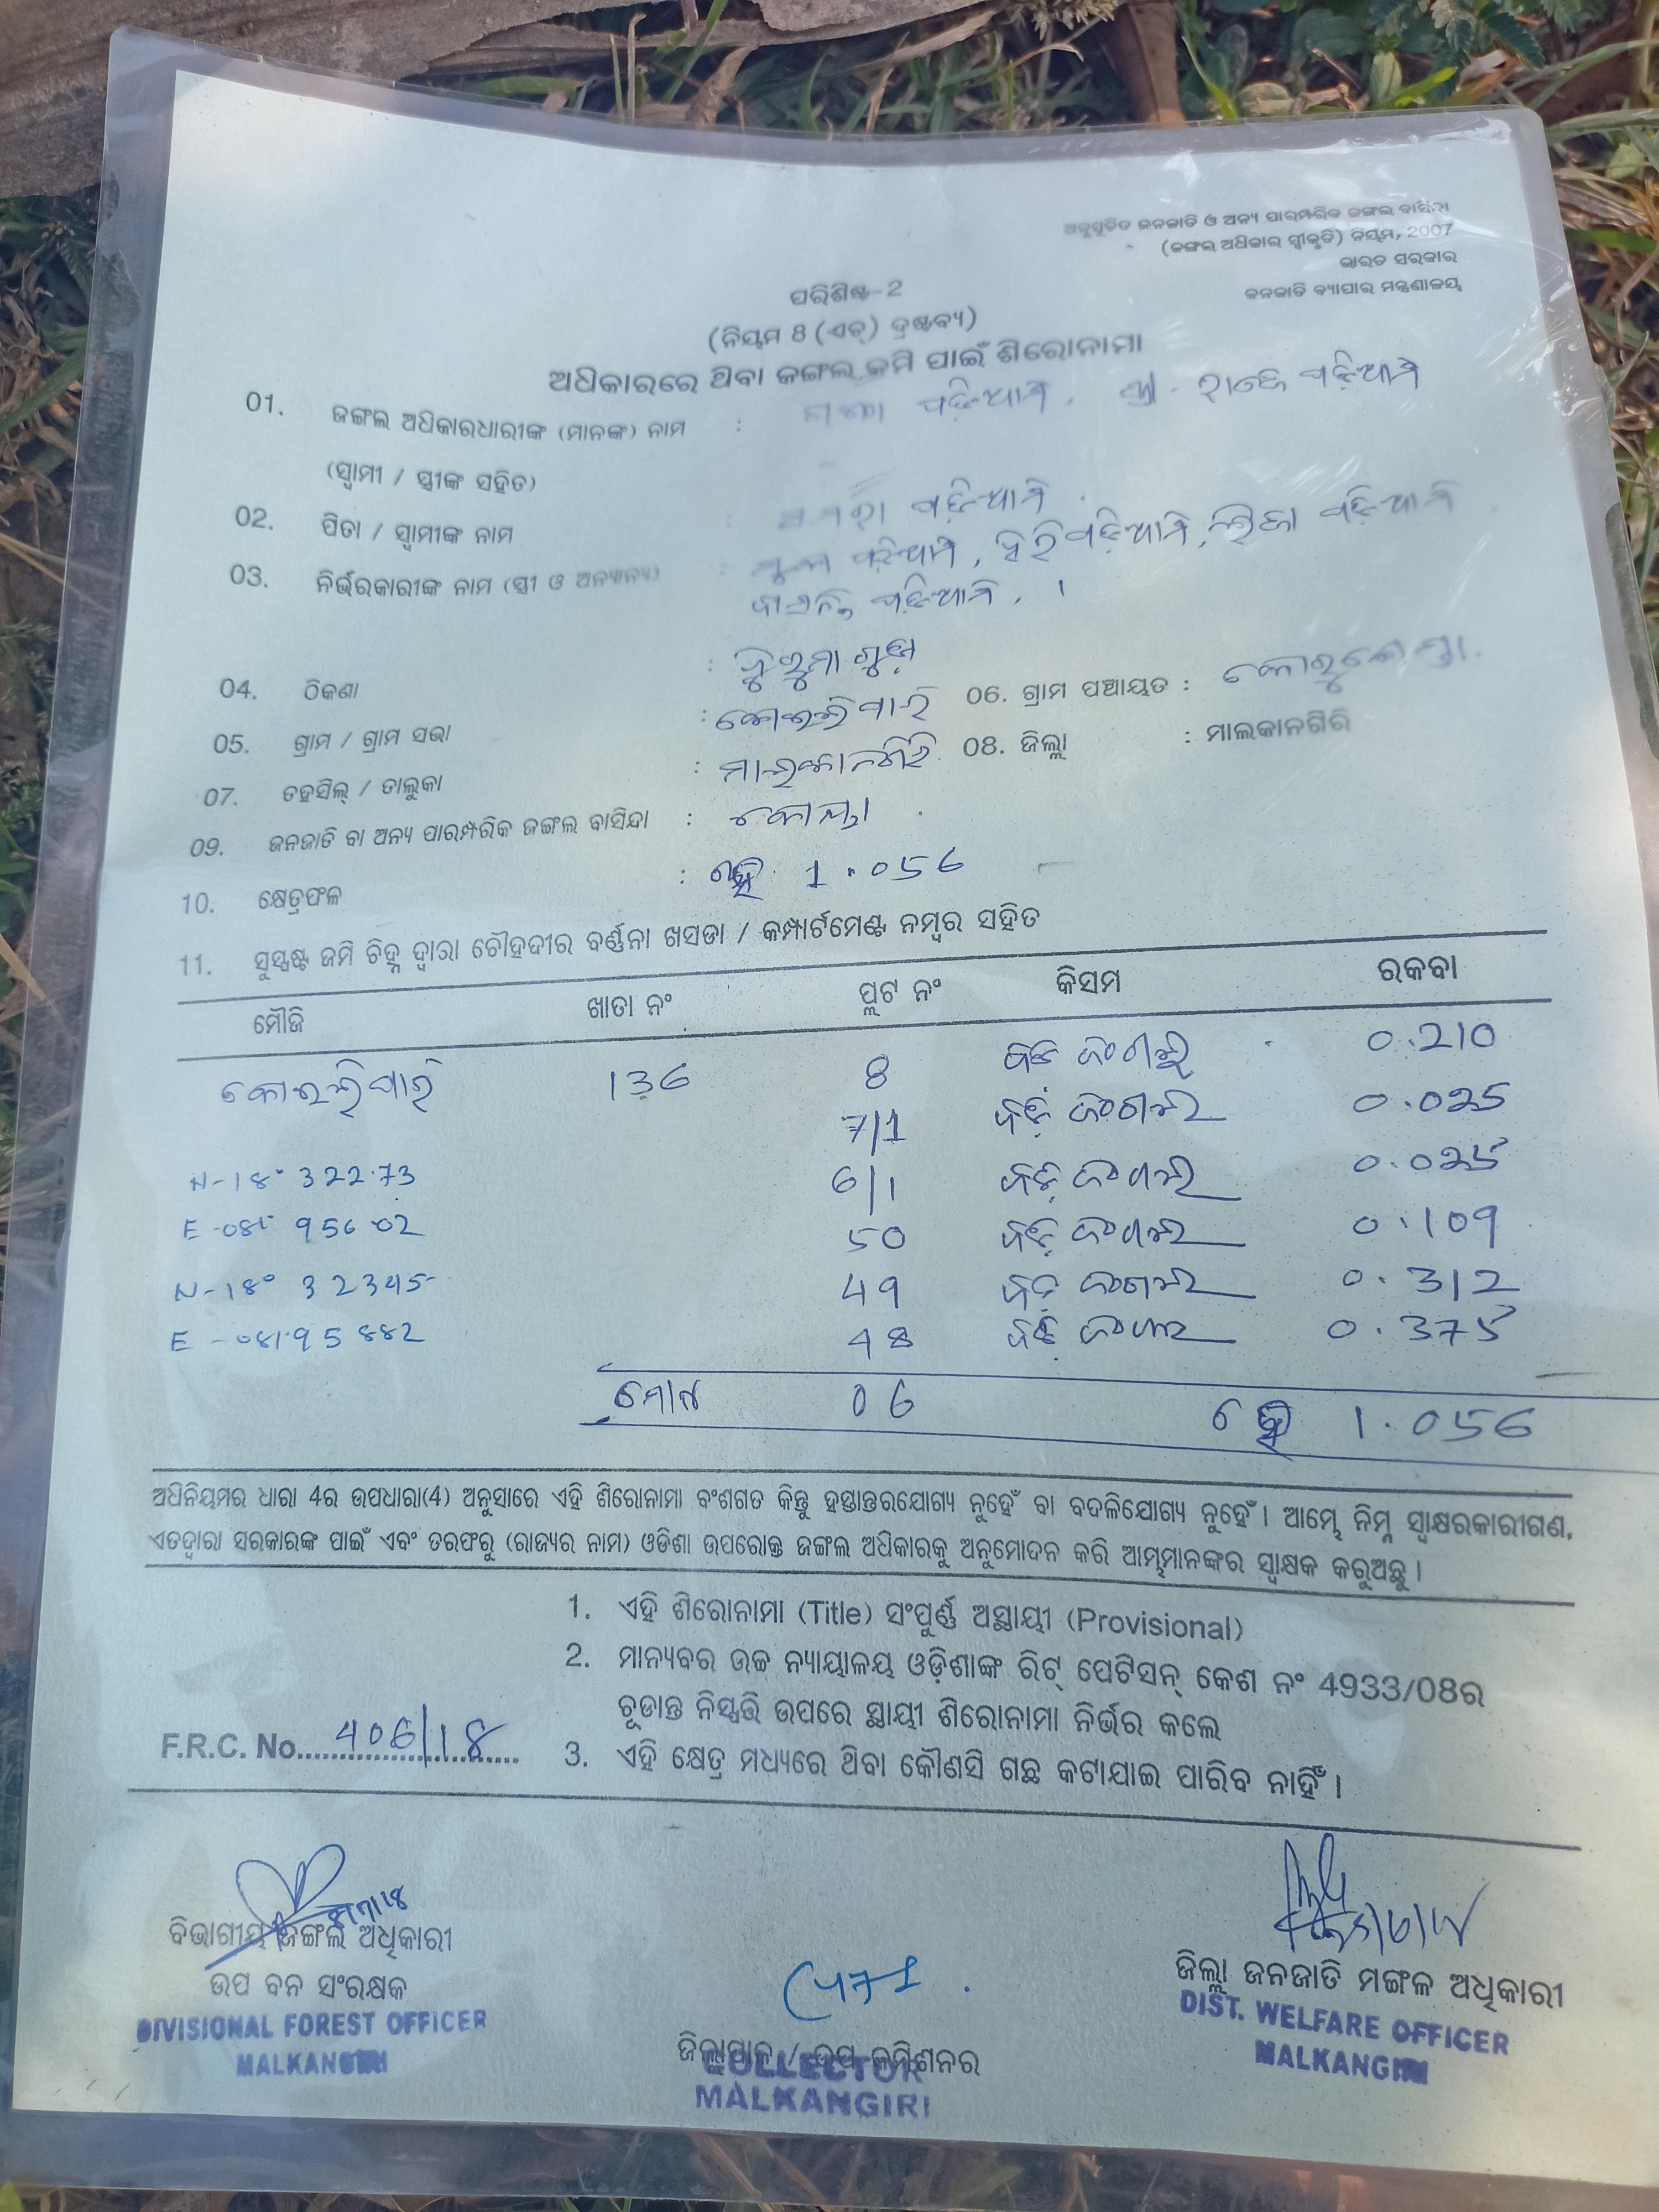 ଅନୁସୂଚିତ ଜନଜାତି ଓ ଅନ୍ୟ ପାରମ୍ପରିକ ଜଙ୍ଗଲ ବାସିନ୍ଦା
(ଜଙ୍ଗଲ ଅଧିକାର ସ୍ୱୀକୃତି) ନିୟମ, 2007
ଭାରତ ସରକାର
ଜନଜାତି ବ୍ୟାପାର ମନ୍ତ୍ରଣାଳୟ
ପରିଶିଷ୍ଟ-2
(ନିୟମ 8 (ଏଚ୍) ଦ୍ରଷ୍ଟବ୍ୟ)
ଅଧିକାରରେ ଥିବା ଜଙ୍ଗଲ ଜମି ପାଇଁ ଶିରୋନାମା
01. ଜଙ୍ଗଲ ଅଧିକାରଧାରୀଙ୍କ (ମାନଙ୍କ) ନାମ : ପଢ଼ିଆମି, ସ୍ତ୍ରୀ- ପଢ଼ିଆମି
(ସ୍ୱାମୀ / ସ୍ତ୍ରୀଙ୍କ ସହିତ)
02. ପିତା / ସ୍ୱାମୀଙ୍କ ନାମ : ପଢ଼ିଆମି
03. ନିର୍ଭରକାରୀଙ୍କ ନାମ (ସ୍ତ୍ରୀ ଓ ଅନ୍ୟାନ୍ୟ) : ପଢ଼ିଆମି, ପଢ଼ିଆମି, ପଢ଼ିଆମି
ପଢ଼ିଆମି, ।
04. ଠିକଣା :
05. ଗ୍ରାମ / ଗ୍ରାମ ସଭା : କୋଇଲିପାରି 06. ଗ୍ରାମ ପଞ୍ଚାୟତ :
07. ତହସିଲ୍ / ତାଲୁକା : ମାଲକାନଗିରି 08. ଜିଲ୍ଲା : ମାଲକାନଗିରି
09. ଜନଜାତି ବା ଅନ୍ୟ ପାରମ୍ପରିକ ଜଙ୍ଗଲ ବାସିନ୍ଦା : କୋୟା
10. କ୍ଷେତ୍ରଫଳ : ହେ 1.056
11. ସୁସ୍ପଷ୍ଟ ଜମି ଚିହ୍ନ ଦ୍ୱାରା ଚୌହଦୀର ବର୍ଣ୍ଣନା ଖସଡା / କମ୍ପାର୍ଟମେଣ୍ଟ ନମ୍ବର ସହିତ
ମୌଜି ଖାତା ନଂ ପ୍ଲଟ ନଂ କିସମ ରକବା
କୋଇଲିପାରି 136 8 ଜଂଗଲ 0.210
7/1 ଜଂଗଲ 0.025
N-18° 322.73 6/1 ଜଂଗଲ 0.025
E-081 956 02 50 ଜଂଗଲ 0.109
N-18° 32345 49 ଜଂଗଲ 0.312
E-081.95882 48 ଜଂଗଲ 0.375
ମୋଟ 06 ହେ 1.056
ଅଧିନିୟମର ଧାରା 4ର ଉପଧାରା(4) ଅନୁସାରେ ଏହି ଶିରୋନାମା ବଂଶଗତ କିନ୍ତୁ ହସ୍ତାନ୍ତରଯୋଗ୍ୟ ନୁହେଁ ବା ବଦଳିଯୋଗ୍ୟ ନୁହେଁ । ଆମ୍ଭେ ନିମ୍ନ ସ୍ୱାକ୍ଷରକାରୀଗଣ,
ଏତଦ୍ୱାରା ସରକାରଙ୍କ ପାଇଁ ଏବଂ ତରଫରୁ (ରାଜ୍ୟର ନାମ) ଓଡିଶା ଉପରୋକ୍ତ ଜଙ୍ଗଲ ଅଧିକାରକୁ ଅନୁମୋଦନ କରି ଆମ୍ଭମାନଙ୍କର ସ୍ୱାକ୍ଷକ କରୁଅଛୁ ।
1. ଏହି ଶିରୋନାମା (Title) ସଂପୂର୍ଣ୍ଣ ଅସ୍ଥାୟୀ (Provisional)
2. ମାନ୍ୟବର ଉଚ୍ଚ ନ୍ୟାୟାଳୟ ଓଡ଼ିଶାଙ୍କ ରିଟ୍ ପେଟିସନ୍ କେଶ ନଂ 4933/08ର
ଚୂଡାନ୍ତ ନିସ୍ପତ୍ତି ଉପରେ ସ୍ଥାୟୀ ଶିରୋନାମା ନିର୍ଭର କଲେ
F.R.C. No. 406/18
3. ଏହି କ୍ଷେତ୍ର ମଧ୍ୟରେ ଥିବା କୌଣସି ଗଛ କଟାଯାଇ ପାରିବ ନାହିଁ ।
ବିଭାଗୀୟ ଜଙ୍ଗଲ ଅଧିକାରୀ
ଉପ ବନ ସଂରକ୍ଷକ
DIVISIONAL FOREST OFFICER
MALKANGIRI
ଜିଲ୍ଲାପାଳ / ଉପ କମିଶନର
COLLECTOR
MALKANGIRI
ଜିଲ୍ଲା ଜନଜାତି ମଙ୍ଗଳ ଅଧିକାରୀ
DIST. WELFARE OFFICER
MALKANGIRI